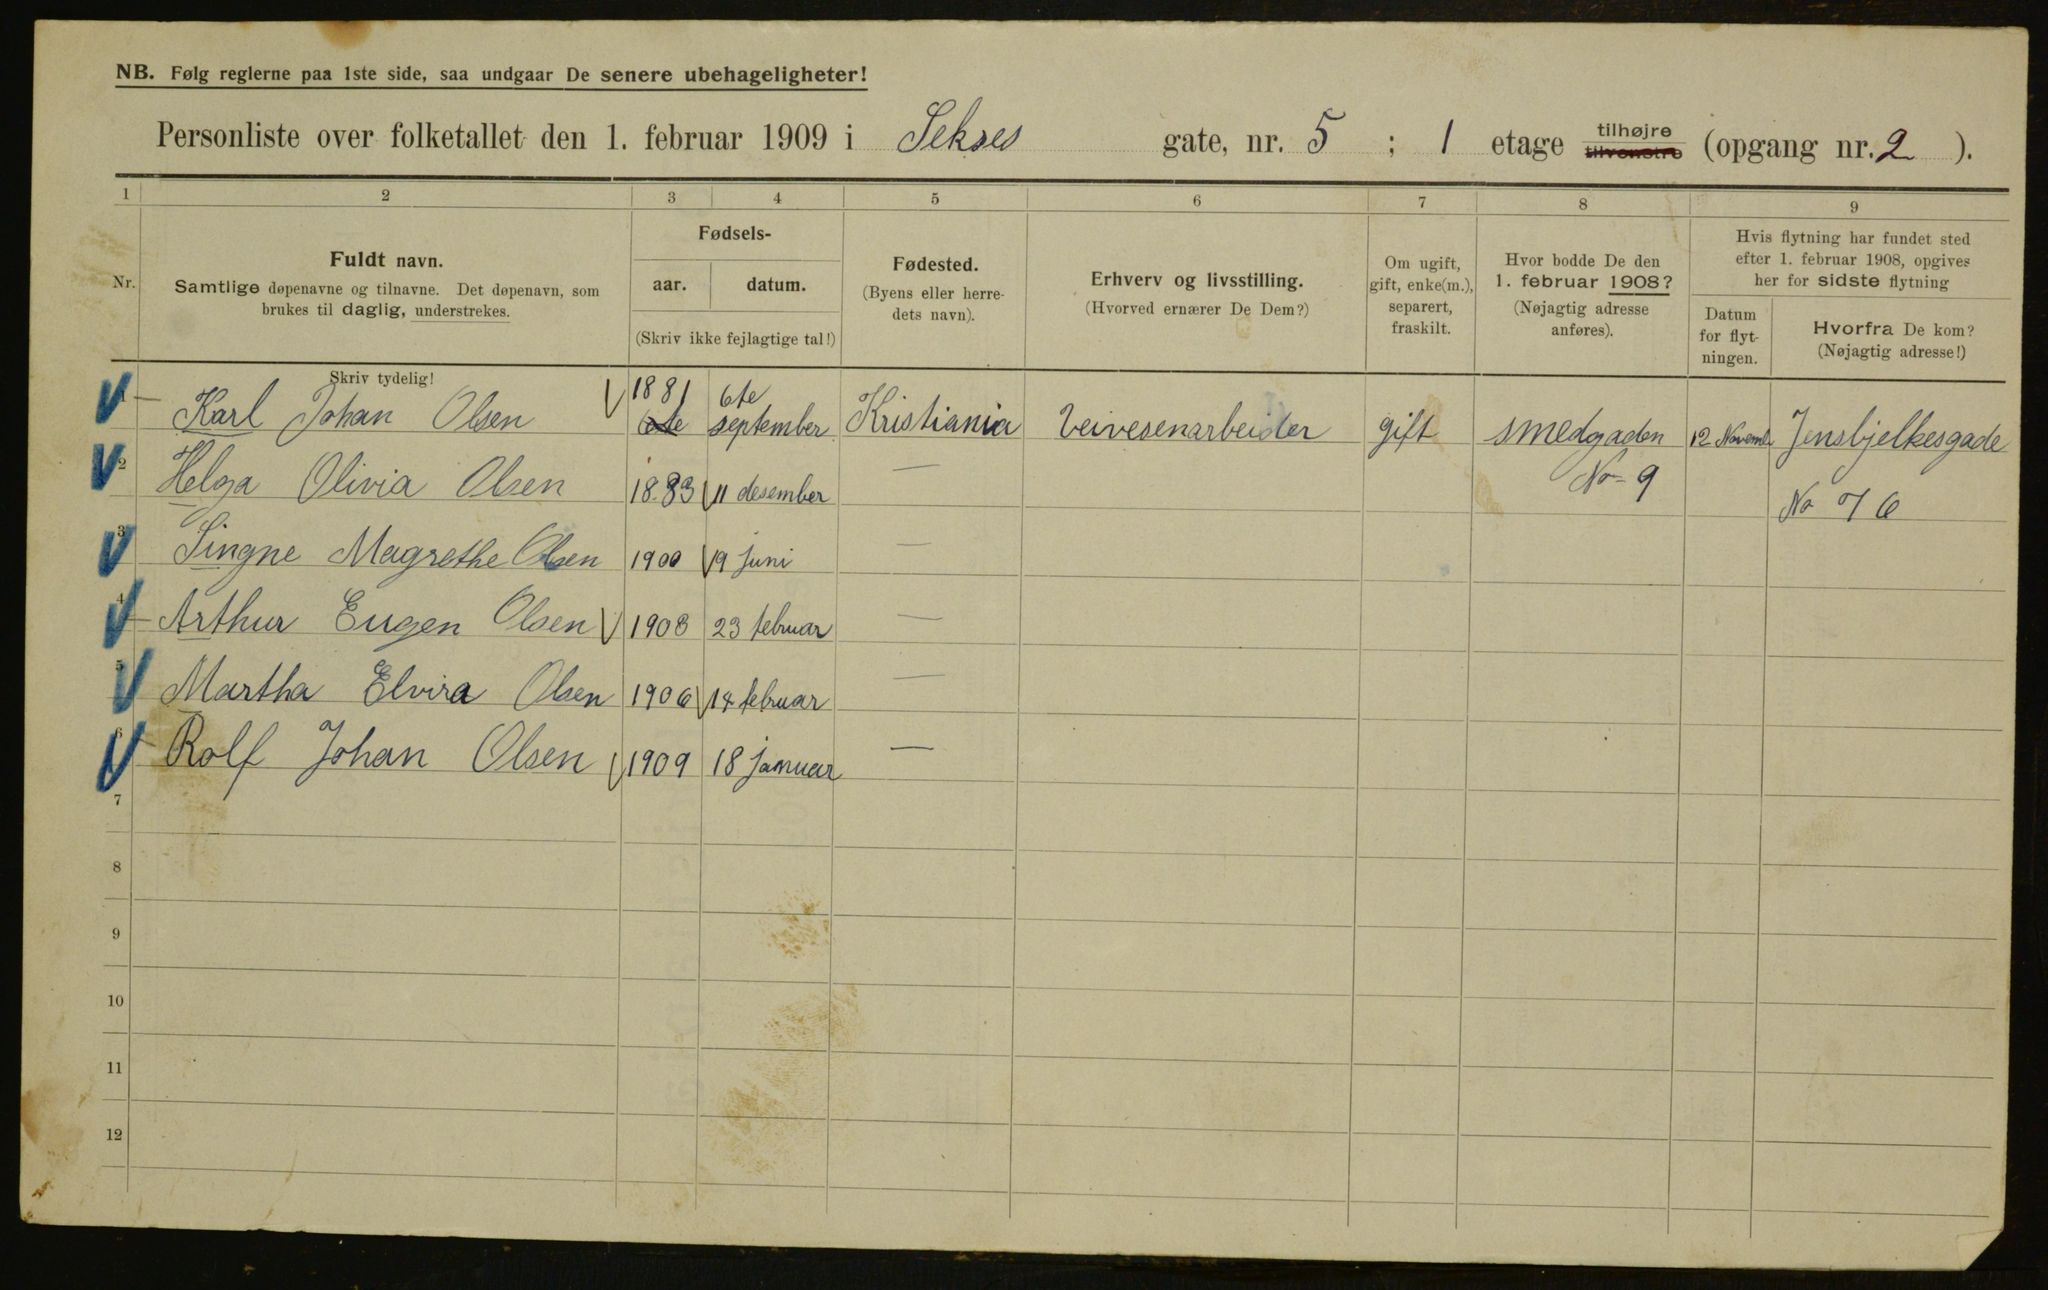 NB. Følg reglerne paa 1ste side, saa undgaar De senere ubehageligheter!
Personliste over folketallet den 1. februar 1909 i Sekses gate, nr. 5 ; 1 etage tilhøjre tilvenstre (opgang nr. 2 ).
1 2 3 4 5 6 7 8 9
Nr.
Fuldt navn.
Samtlige døpenavne og tilnavne. Det døpenavn, som
brukes til daglig, understrekes.
Skriv tydelig!
Fødsels-
aar. datum.
(Skriv ikke fejlagtige tal!)
Fødested.
(Byens eller herre-
dets navn).
Erhverv og livsstilling.
(Hvorved ernærer De Dem?)
Om ugift,
gift, enke(m.),
separert,
fraskilt.
Hvor bodde De den
1. februar 1908?
(Nøjagtig adresse
anføres).
Hvis flytning har fundet sted
efter 1. februar 1908, opgives
her for sidste flytning
Datum
for flyt-
ningen.
Hvorfra De kom?
(Nøjagtig adresse!)
1 Karl Johan Olsen 1881 6te 6te september Kristiania Veivesenarbeider gift smedgaden 12 Novemb. Jensbjelkesgade
2 Helga Olivia Olsen 1883 11 desember — No 9 No 76
3 Singne Magrethe Olsen 1900 19 juni —
4 Arthur Eugen Olsen 1903 23 februar —
5 Martha Elvira Olsen 1906 14 februar —
6 Rolf Johan Olsen 1909 18 januar —
7
8
9
10
11
12